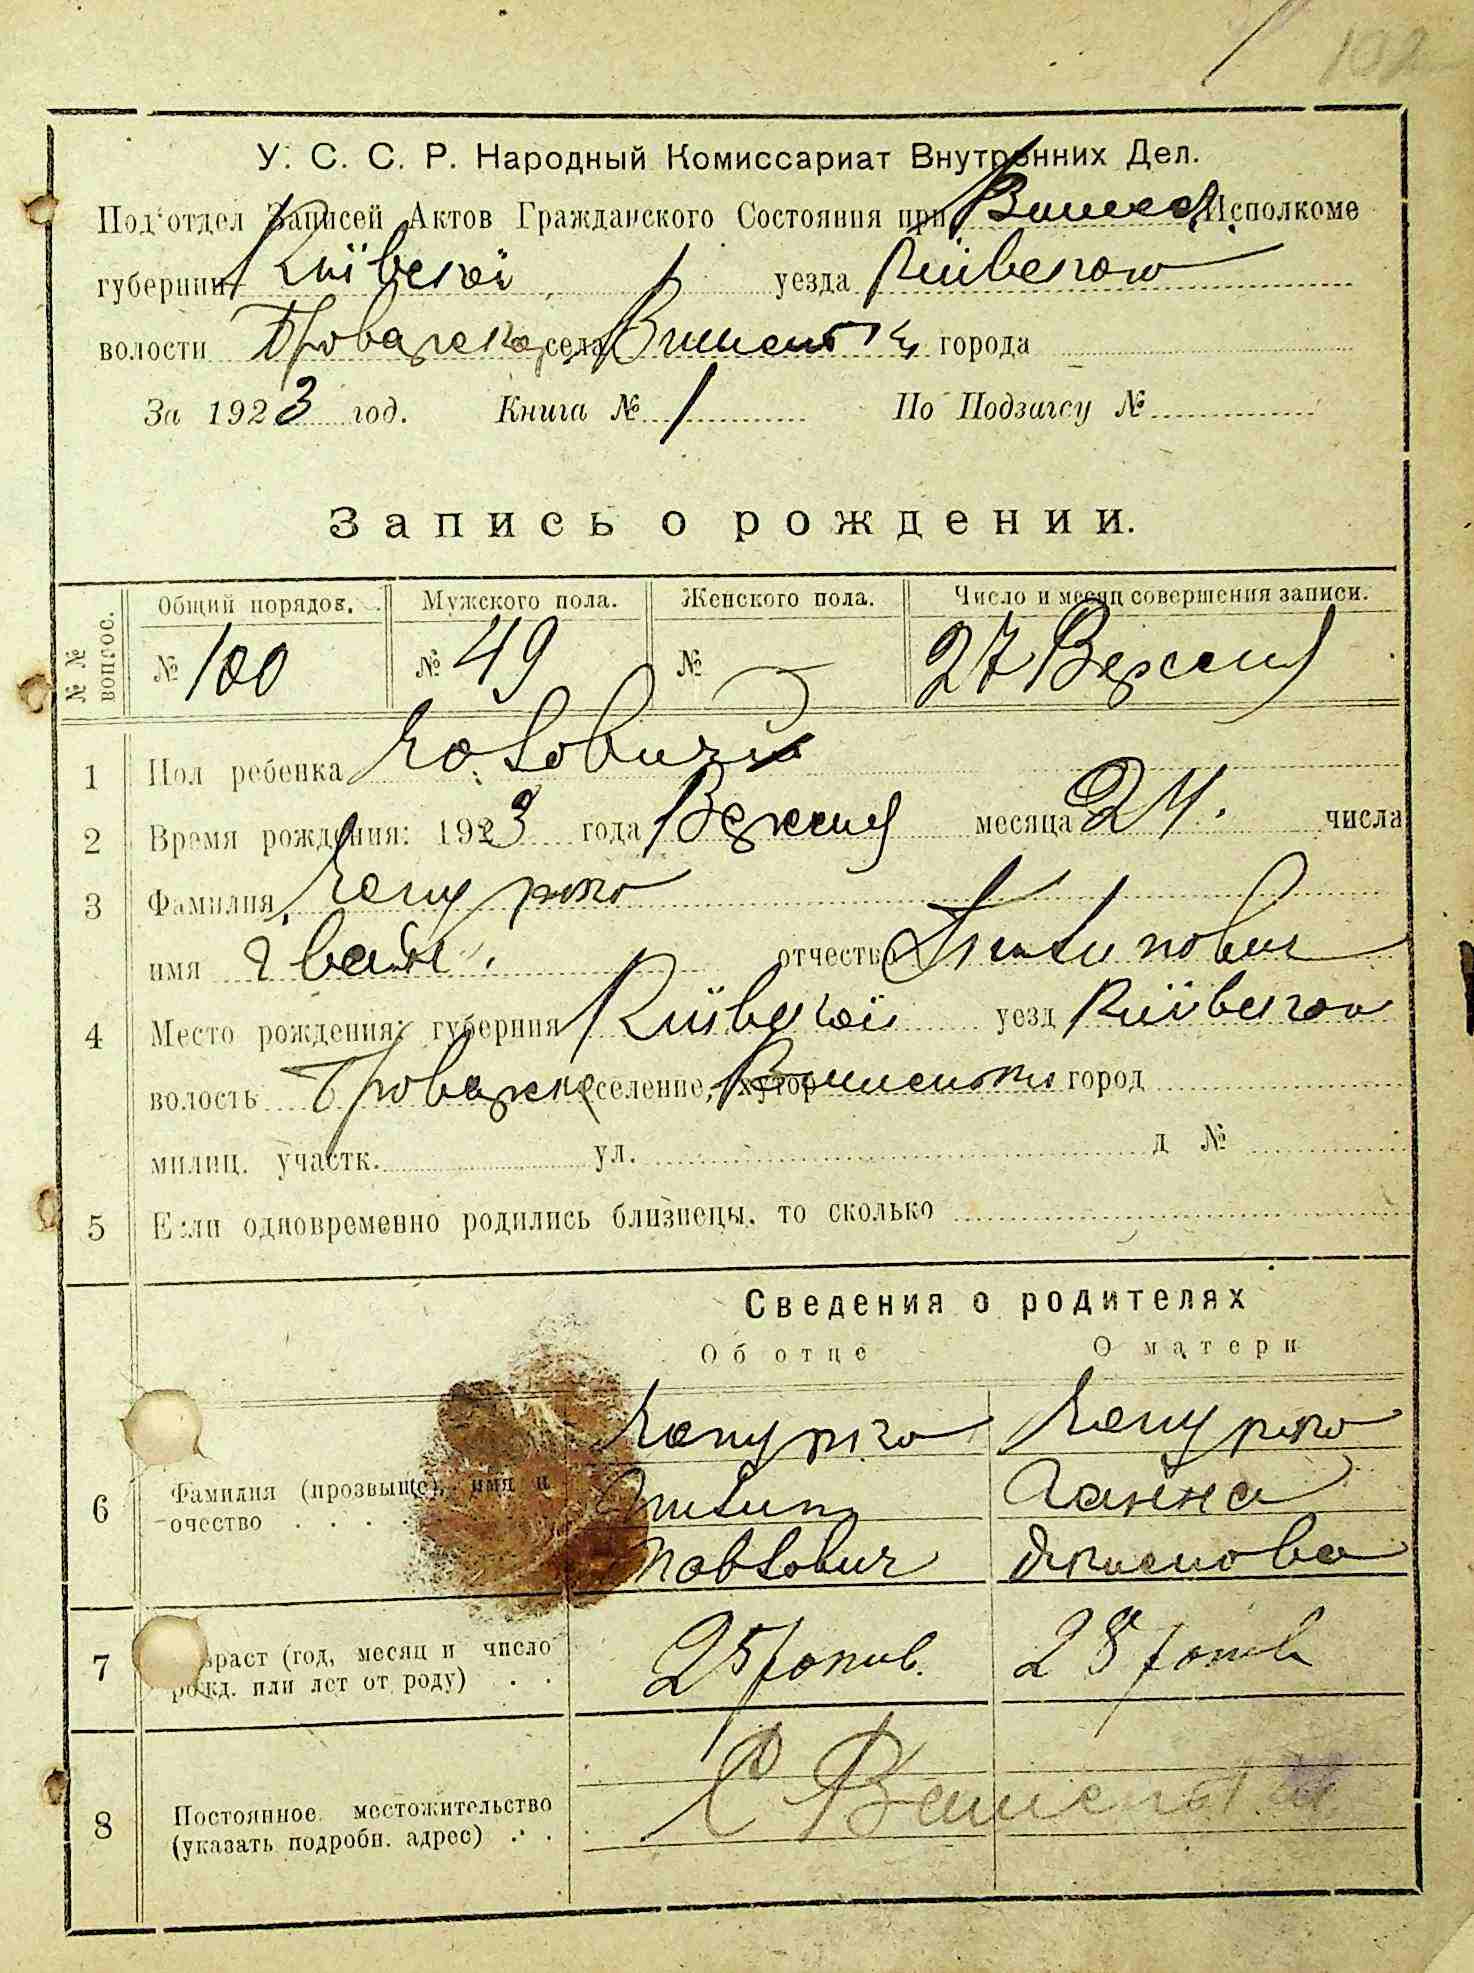 102
У. С. С. Р. Народный Комиссариат Внутренних Дел.
Под'отдел Записей Актов Гражданского Состояния при Исполкоме
губернии Київської уезда Київского
волости Броварска села города
За 1923 год. Книга № 1 По Подзагсу №
Запись о рождении.
№ № вопрос.
Общий порядок. Мужского пола. Женского пола. Число и месяц совершения записи.
№ 100 № 49 № 27 Вересня
1 Пол ребенка Чоловичий
2 Время рождения: 1923 года Вересня месяца 24. числа
3 Фамилия
имя Іван отчество
4 Место рождения: губерния Київської уезд Київского
волость Броварска селение, хутор город
милиц. участк. ул. д №
5 Если одновременно родились близнецы, то сколько
Сведения о родителях
Об отце О матери
6 Фамилия (прозвыще), имя и
очество . . . . Ганна
Павлович
7 Возраст (год, месяц и число
рожд. или лет от роду) . . 25 28
8 Постоянное местожительство
(указать подробн. адрес) . . С